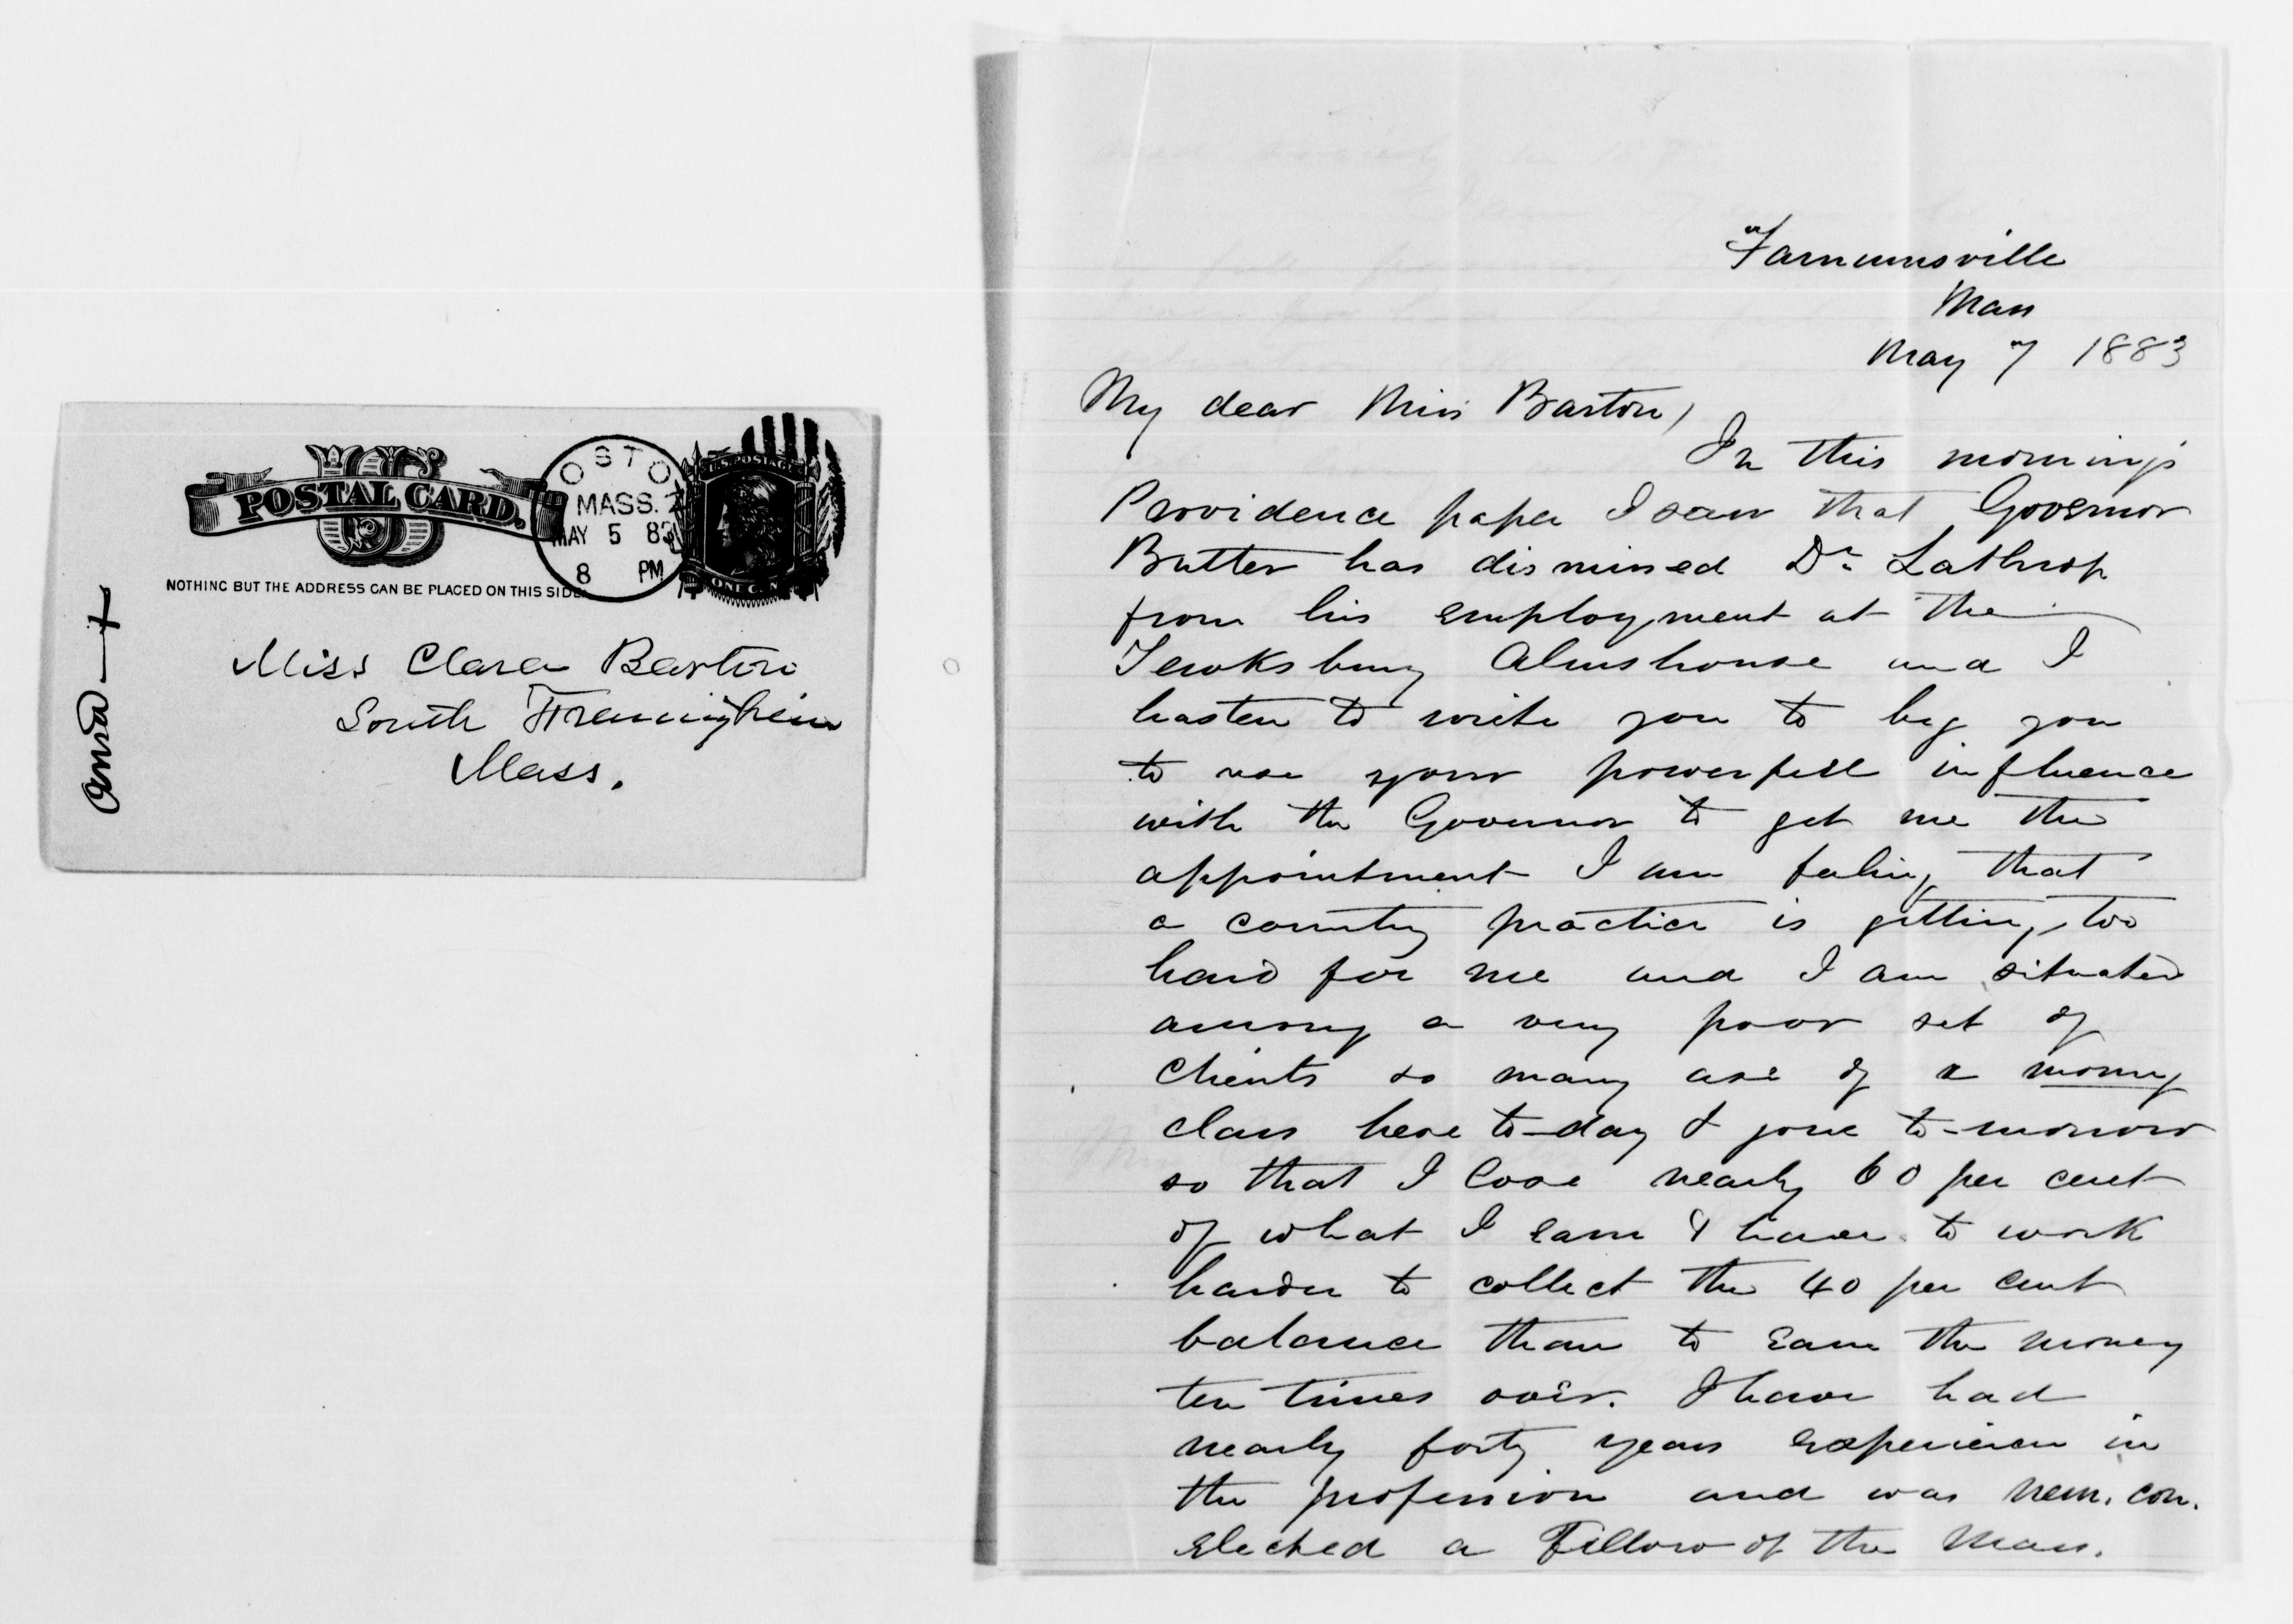 US
POSTAL CARD.
NOTHING BUT THE ADDRESS CAN BE PLACED ON THIS SIDE.
OSTO
MASS.
MAY 5 83
8 PM
U.S. POSTAGE
ONE CENT
Miss Clara Barton
South Framingham
Mass.
Farnumsville
Mass
May 7 1883
My dear Miss Barton,
In this morning's
Providence paper I saw that Governor
Butler has dismissed Dr. Lathrop
from his employment at the
Tewksbury Almshouse and I
hasten to write you to beg you
to use your powerfull influence
with the Governor to get me the
appointment I am feeling that
a country practice is getting too
hard for me and I am situated
among a very poor set of
clients so many are of a moving
class here to-day & gone to-morrow
so that I lose nearly 60 per cent
of what I earn & have to work
harder to collect the 40 per cent
balance than to earn the money
ten times over. I have had
nearly forty years experience in
the profession and was nem. con.
elected a Fellow of the Mass.